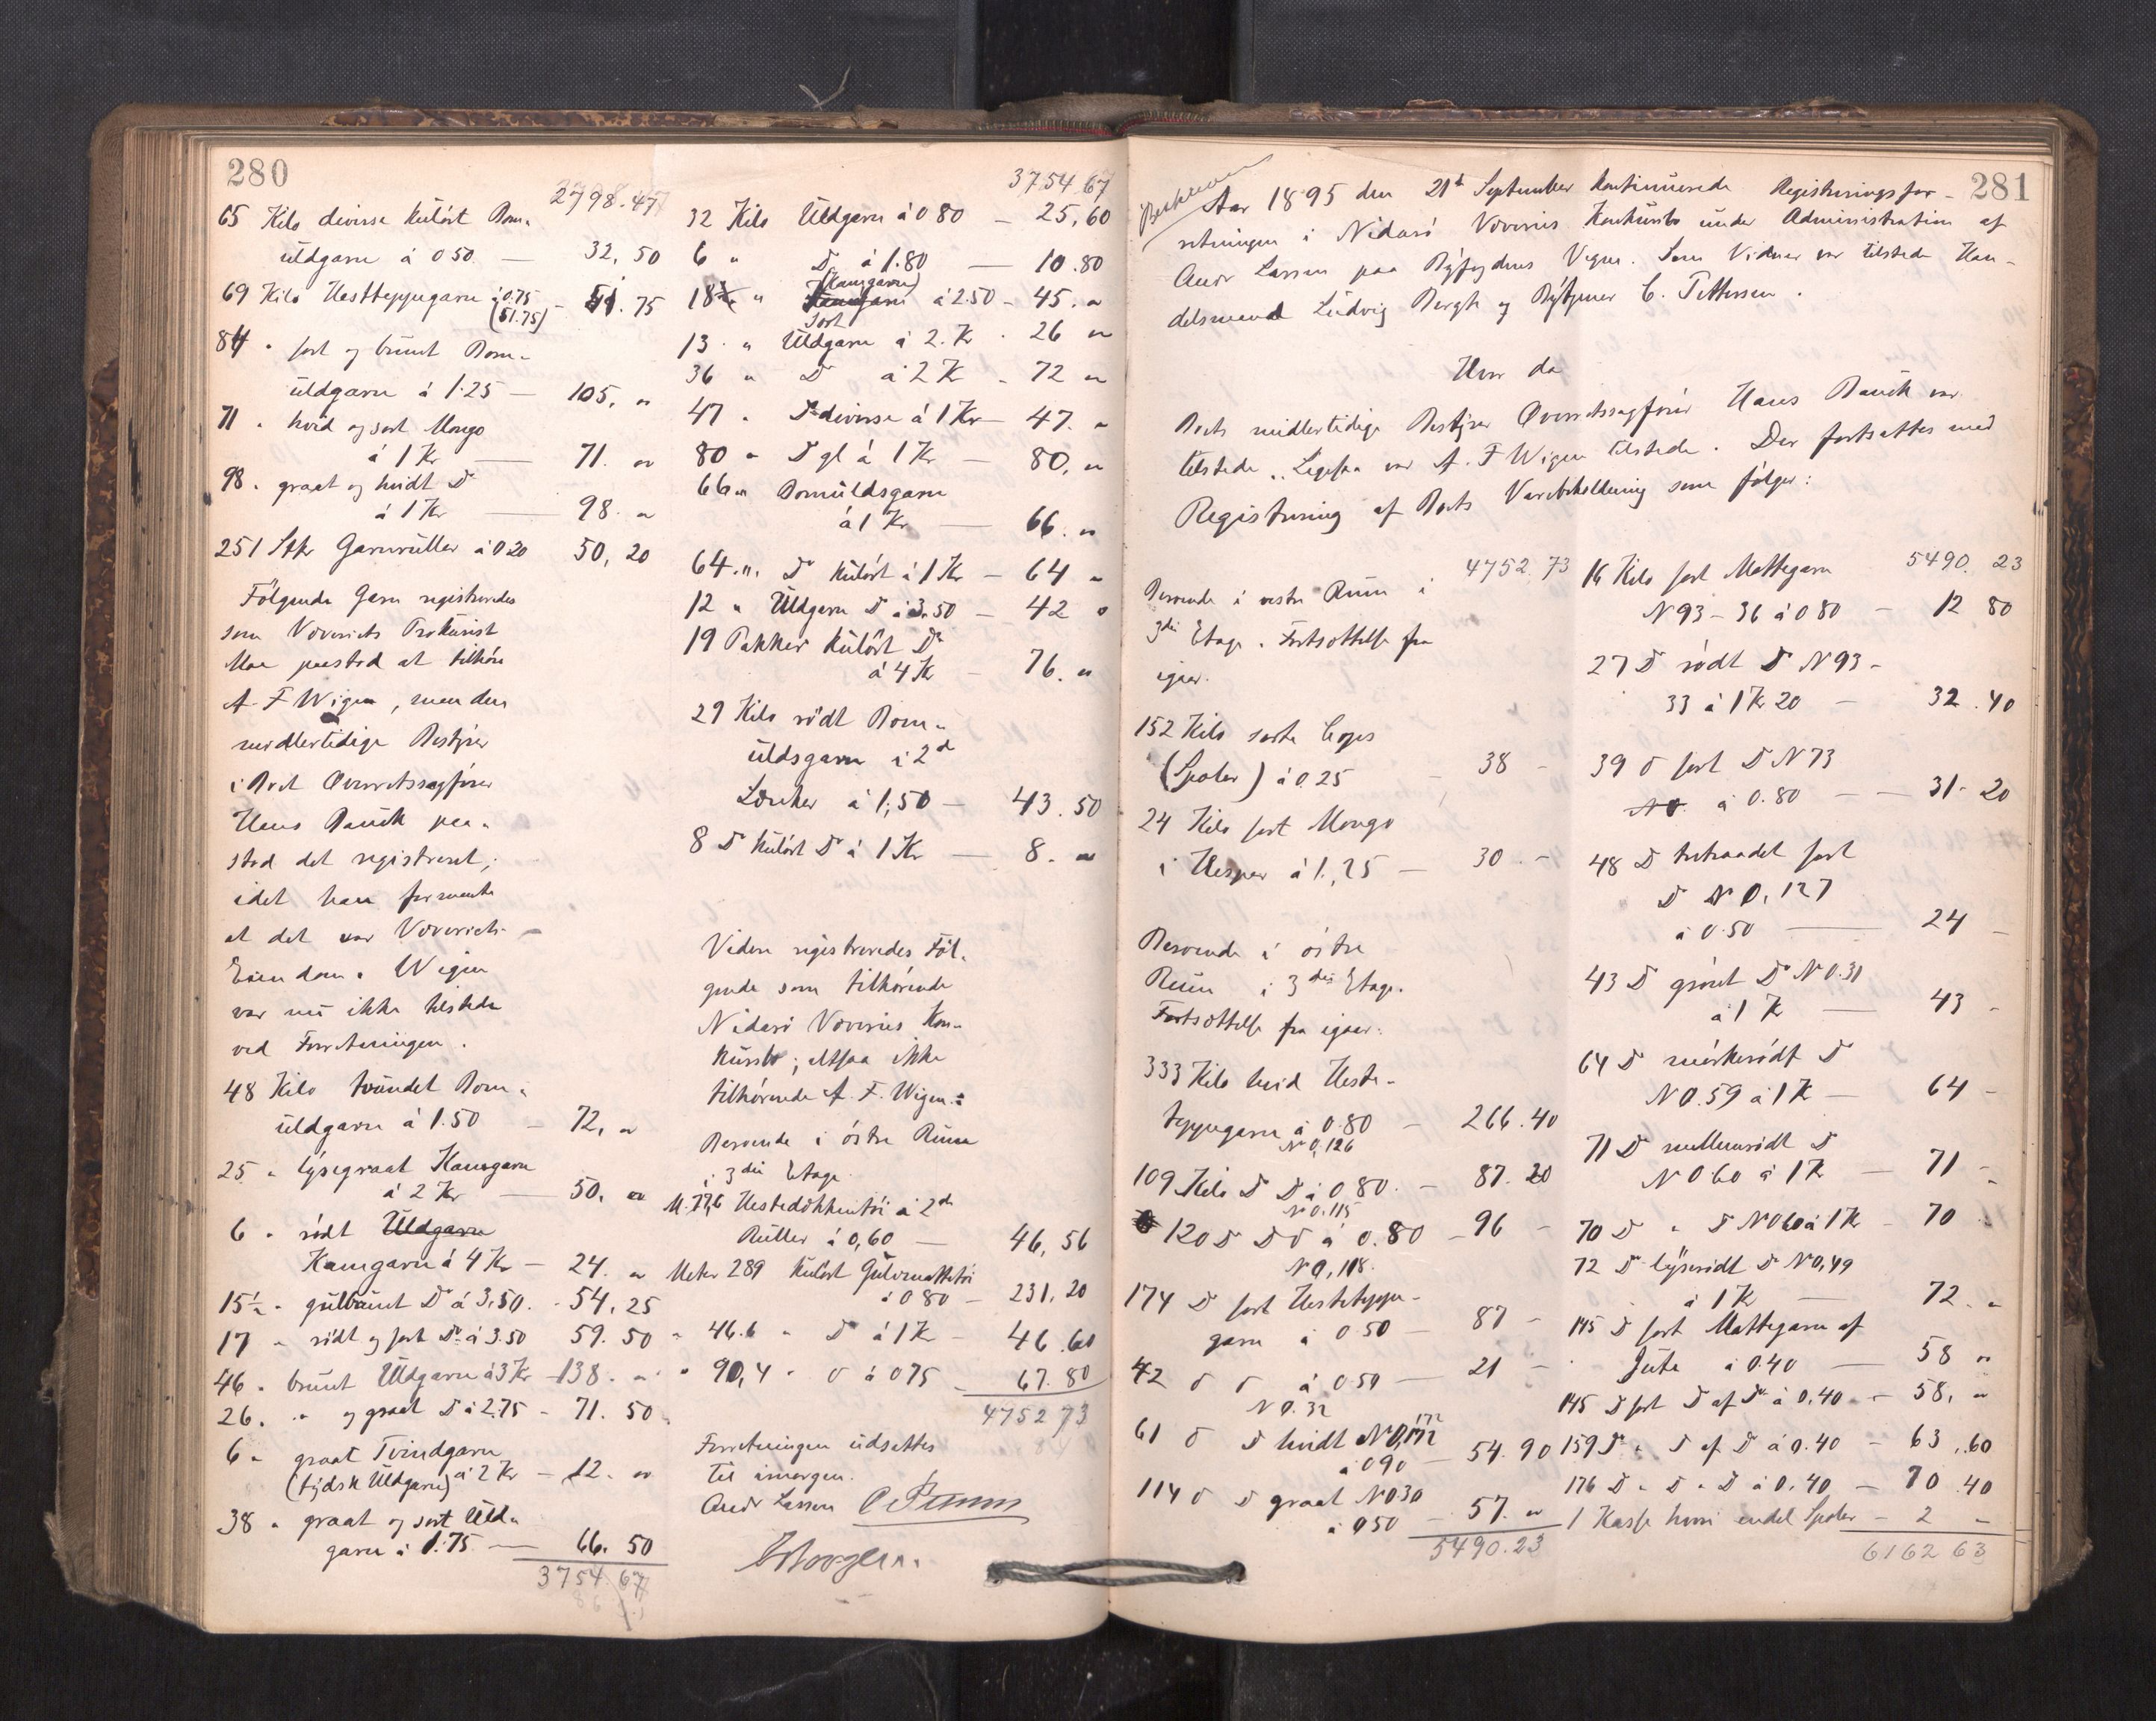 280
2798.47
65 Kilo diverse kulört Bom-
uldgarn á 0 50 — 32,50
69 Kilo Hestteppegarn á 0.75 (51.75) - 51.75
84 " sort og brunt Bom-
uldgarn á 1.25 — 105, "
71 " hvid og sort Mongo
á 1 Kr — 71. "
98 " graat og hvidt Do
á 1 Kr — 98. "
251 Stkr Garnruller á 0 20 50,20
Følgende Garn registreredes
som Væveriets Prokurist
Moe paastod at tilhøre
A. F Wigen, men den
midlertidige Bestyrer
i Boet Overretssagfører
Hans Bauck paa-
stod det registreret,
idet han formente
at det var Væveriets
Eiendom. Wigen
var nu ikke tilstede
ved Forretningen.
48 Kilo tvundet Bom-
uldgarn á 1.50 — 72, "
25 " lysegraat Kamgarn
á 2 Kr — 50, "
6 " rödt Uldgarn
Kamgarn á 4 Kr — 24. "
15½ " gulbrunt Do á 3,50. - 54,25
17 " rödt og sort Do á 3.50 59.50
46 " brunt Uldgarn á 3 Kr - 138. "
26. " " og graat D á 2,75 - 71.50
6 " graat Tvindgarn
(tydsk Uldgarn) á 2 Kr — 12. "
38 " graat og sort Uld-
garn á 1.75 — 66.50
3754.67
3754.67
32 Kilo Uldgarn á 0 80 — 25,60
6 " Do á 1.80 — 10.80
18 " (Kamgarn) á 2.50 - 45. "
Sort
13 " Uldgarn á 2. Kr - 26 "
36 " Do á 2 Kr - 72 "
47 " D diverse á 1 Kr — 47. "
80 " D gl á 1 Kr — 80, "
66 " Bomuldsgarn
á 1 Kr — 66. "
64 " Do kulört á 1 Kr — 64 "
12 " Uldgarn D á 3.50 — 42 "
19 Pakker kulört Do
á 4 Kr — 76. "
29 Kilo rödt Bom-
uldsgarn i 2de
Lænker á 1,50 — 43.50
8 D kulört D á 1 Kr — 8. "
Videre registreredes Föl-
gende som tilhørende
Nidarö Væveries Kon-
kursbo; altsaa ikke
tilhörende A. F. Wigen:
Beroende i östre Rum
i 3die Etage.
M. 77,6 Hestedækkentöi i 2de
Ruller á 0,60 — 46,56
Meter 289 kulört Gulvmattetöi
á 0 80 — 231,20
" 46.6 " D á 1 Kr — 46.60
" 90,4 " D á 0 75 — 67.80
4752 73
Forretningen udsattes
til imorgen.
Andr Larsen
281
Beskreven
Aar 1895 den 21de September kontinuerede Registreringsfor-
retningen i Nidarö Væveries Konkursbo under Administration af
Andr Larsen paa Byfogdens Vegne. Som Vidner var tilstede Han-
delsmænd Ludvig Bergh og Bytjener C. Pettersen.
Hvor da
Boets midlertidige Bestyrer Overretssagfører Hans Bauck var
tilstede. Ligesaa var A. F Wigen tilstede. Der fortsattes med
Registrering af Boets Varebeholdning som følger:
4752.73
Beroende i vestre Rum i
3die Etage. Fortsættelse fra
igaar.
152 Kilo sorte Cops
(Spoler) á 0.25 — 38 -
24 Kilo sort Mongo
i Hesper á 1,25 — 30. -
Beroende i östre
Rum i 3die Etage.
Fortsættelse fra igaar:
333 Kilo hvid Heste-
teppegarn á 0.80 — 266.40
No 0,126
109 Kilo D D á 0 80. — 87.20
No 0.115
120 D D D á 0.80 — 96 -
N 0,108.
174 D sort Hesteteppe-
garn á 0 50 — 87 -
42 D D á 0 50 — 21 -
N 0.32
61 D D hvidt N 0,172
á 0 90 — 54.90
114 D D graat N 0 30
á 0 50 — 57. "
5490.23
5490.23
16 Kilo sort Mattegarn
N 93-36 á 0 80 - 12 80
27 D rödt D N 93-
33 á 1 Kr 20 — 32.40
39 D sort D N 73
á 0.80 — 31.20
48 D totraadet sort
D N 0,127
á 0.50 — 24 -
43 D grönt D N 0.31
á 1 Kr — 43 -
64 D mörkerödt D
N 0.59 á 1 Kr — 64 -
71 D mellemrödt D
N 0 60 á 1 Kr — 71 -
70 D " D N 0 60 á 1 Kr - 70 -
72 D lyserödt D N 0,49
á 1 Kr — 72. "
145 D sort Mattegarn af
Jute á 0.40 — 58 "
145 D sort D af D á 0,40 — 58, "
159 D " D af D á 0.40 — 63,60
176 D " D " D á 0,40 — 70.40
1 Kasse hvori endel Spoler — 2 -
6162 63